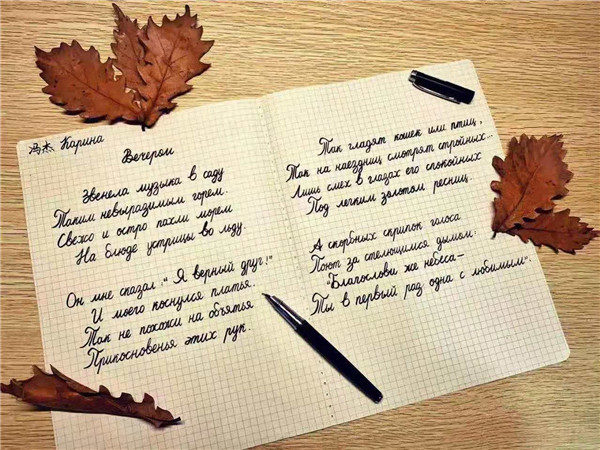 冯杰 Карина
Вечером
Звенела музыка в саду
Таким невыразимым горем.
Свежо и остро пахли морем
На блюде устрицы во льду.
Он мне сказал: "Я верный друг!"
И моего коснулся платья.
Так не похожи на объятья
Прикосновенья этих рук.
Так гладят кошек или птиц,
Так на наездниц смотрят стройных...
Лишь смех в глазах его спокойных
Под легким золотом ресниц.
А скорбных скрипок голоса
Поют за стелющимся дымом:
"Благослови же небеса—
Ты в первый раз одна с любимым".